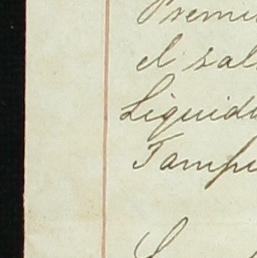 Premi
el sal
Liquid
Tampi